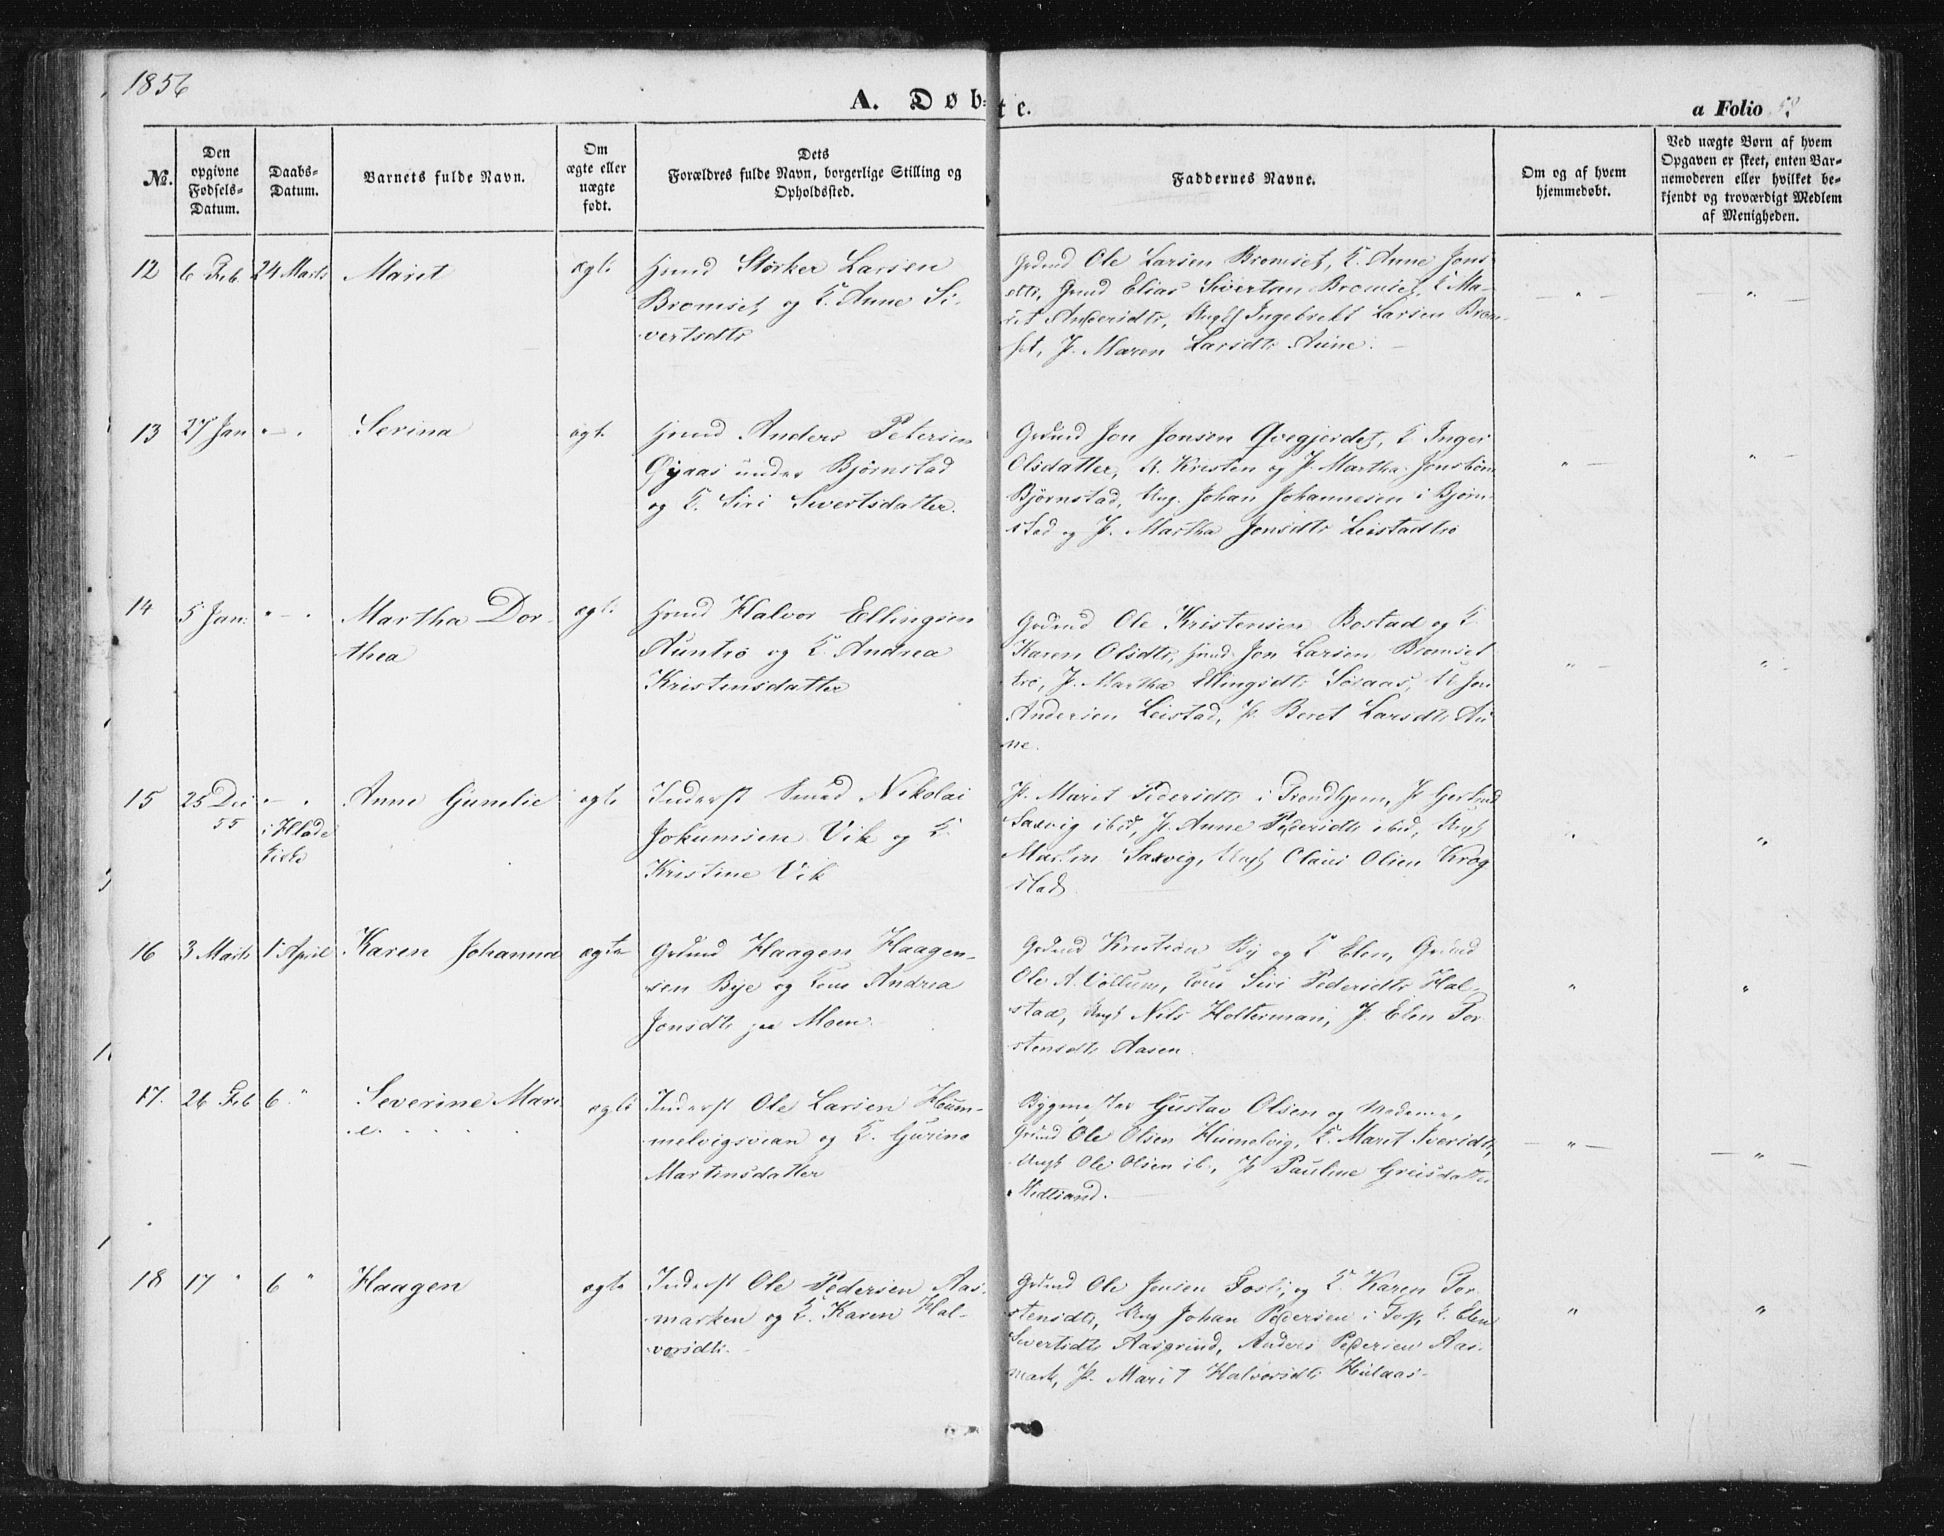 1856
A. Døbte.
a Folio 58
№.
Den opgivne Fødsels-Datum.
Daabs-Datum.
Barnets fulde Navn.
Om ægte eller uægte født.
Dets Forældres fulde Navn, borgerlige Stilling og Opholdssted.
Faddernes Navne.
Om og af hvem hjemmedøbt.
Ved uægte Børn af hvem Opgaven er skeet, enten Barnemoderen eller hvilket bekjendt og troværdigt Medlem af Menigheden.
12 6 Feb. 24 Marts Marit ægte
Hmd Størker Larsen
Bromset og K. Anne Si-
vertsdtr
Grdmd Ole Larsen Bromset, K. Anne Jons-
dtr, Grmd Elias Sivertsn Bromset, K Ma-
rit Andersdtr, Ungk Ingebrekt Larsen Brom-
set, P. Maren Larsdtr Aune. -
- " - - " -
13 27 Jan " - " Serina ægte
Hmd Anders Petersen
Øyaas under Bjørnstad
og K. Siri Sivertsdatter.
Grdmd Jon Jonsen Qvegjerdet, K Inger
Olsdatter, U. Kristen og P. Martha Jonsbørn
Bjørnstad, Ung. Johan Johannesen i Bjørn-
stad og P. Martha Jonsdtr Leistadtrø
" - " -
14 5 Jan. " - " Martha Dor-
thea
ægte
Hmd Halvor Ellingsen
Auntrø og K. Andrea
Kristensdatter
Grdmd Ole Kristensen Bostad og K
Karen Olsdtr, Hmd Jon Larsen Bromset
trø, P. Martha Ellingsdtr Søraas, U Jon
Andersen Leistad, P. Beret Larsdtr Au
ne.
" - " -
15 25 Dec 55 " - " i Hlade Kirke
Anne Gunelie ægte
Inderst Smed Nikolai
Jokumsen Vik og K.
Kristine Vik
P. Marit Pedersdtr i Trondhjem, P. Gertrud
Saxvig ibid, P. Anne Pedersdtr ibid, Ungk
Martin Saxvig, Ungk Claus Olsen Krog
stad.
" "
16 3 Marts 1 April Karen Johanna ægte
Grdmd Haagen Haagen-
sen Bye og Kone Andrea
Jonsdtr paa Moen.
Grdmd Kristian By og K Elen, Grdmd
Ole A. Vollum, Kone Siri Pedersdtr Hal-
stad, Ungk Nils Holterman, P. Elen Tor
stensdtr Aasen.
" "
17. 26 Feb 6. " Severine Mari
e. ægte
Inderst Ole Larsen Hum-
melvigsvian og K. Gurine
Martinsdatter
Bygmester Gustav Olsen og Madame,
Grdmd Ole Olsen Humelvig, K. Marit Iversdtr,
Ungk Ole Olsen ib., P. Pauline Greisdatter
Midtsand.
- " - - " -
18 17 " 6 " Haagen ægte
Inderst Ole Pedersen Aas-
marken og K. Karen Hal-
vorsdtr.
Grdmd Ole Jensen Fosli, og K. Karen Tor
stensdtr, Ung Johan Pedersen i Torp, K. Elen
Sivertsdtr Aasgrind, Anders Pedersen Aas-
mark, P. Marit Halvorsdtr Hulaas-
" "